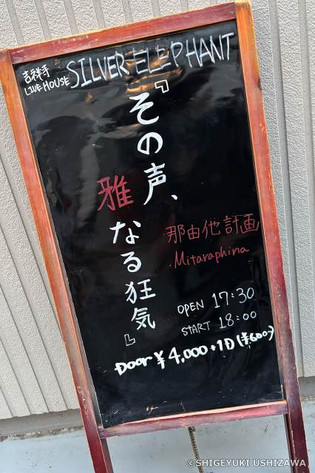 吉祥寺
LIVE HOUSE SILVER ELEPHANT
『その声、
雅なる狂気』
那由他計画
Mitaraphina
OPEN 17:30
START 18:00
Door ¥4,000+1D(¥600)
©SHIGEYUKI USHIZAWA